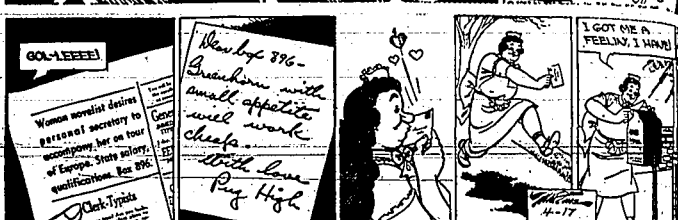 GOL-LEEEE!
Woman novelist desires
personal secretary to
accompany her on tour
of Europe. State salary,
qualifications. Box 896.
Clerk-Typists
Dear box 896-
Greenhorn with
small appetite
will work
cheap.
With love
Pug High
I GOT ME A
FEELIN', I HAVE!
4-17